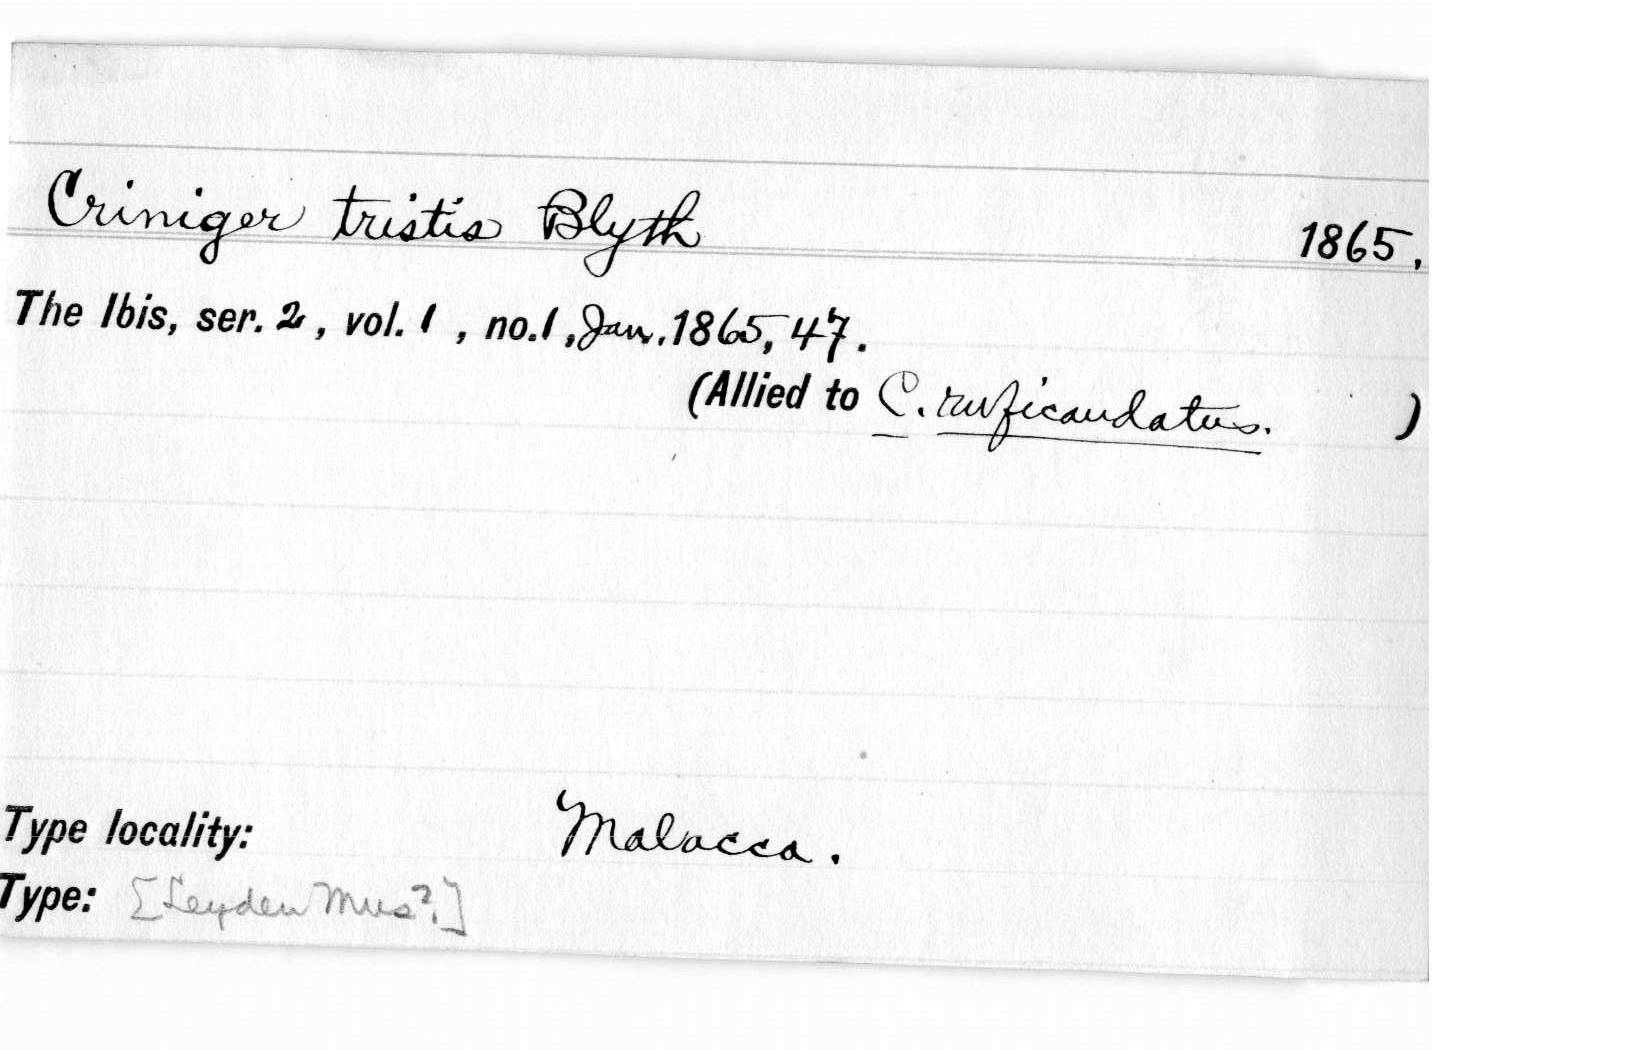 Criniger tristis Blyth 1865.
The Ibis, ser. 2, vol. 1, no. 1, Jan. 1865, 47.
(Allied to C. ruficaudatus. )
Type locality: Malacca.
Type: [Leyden Mus?]